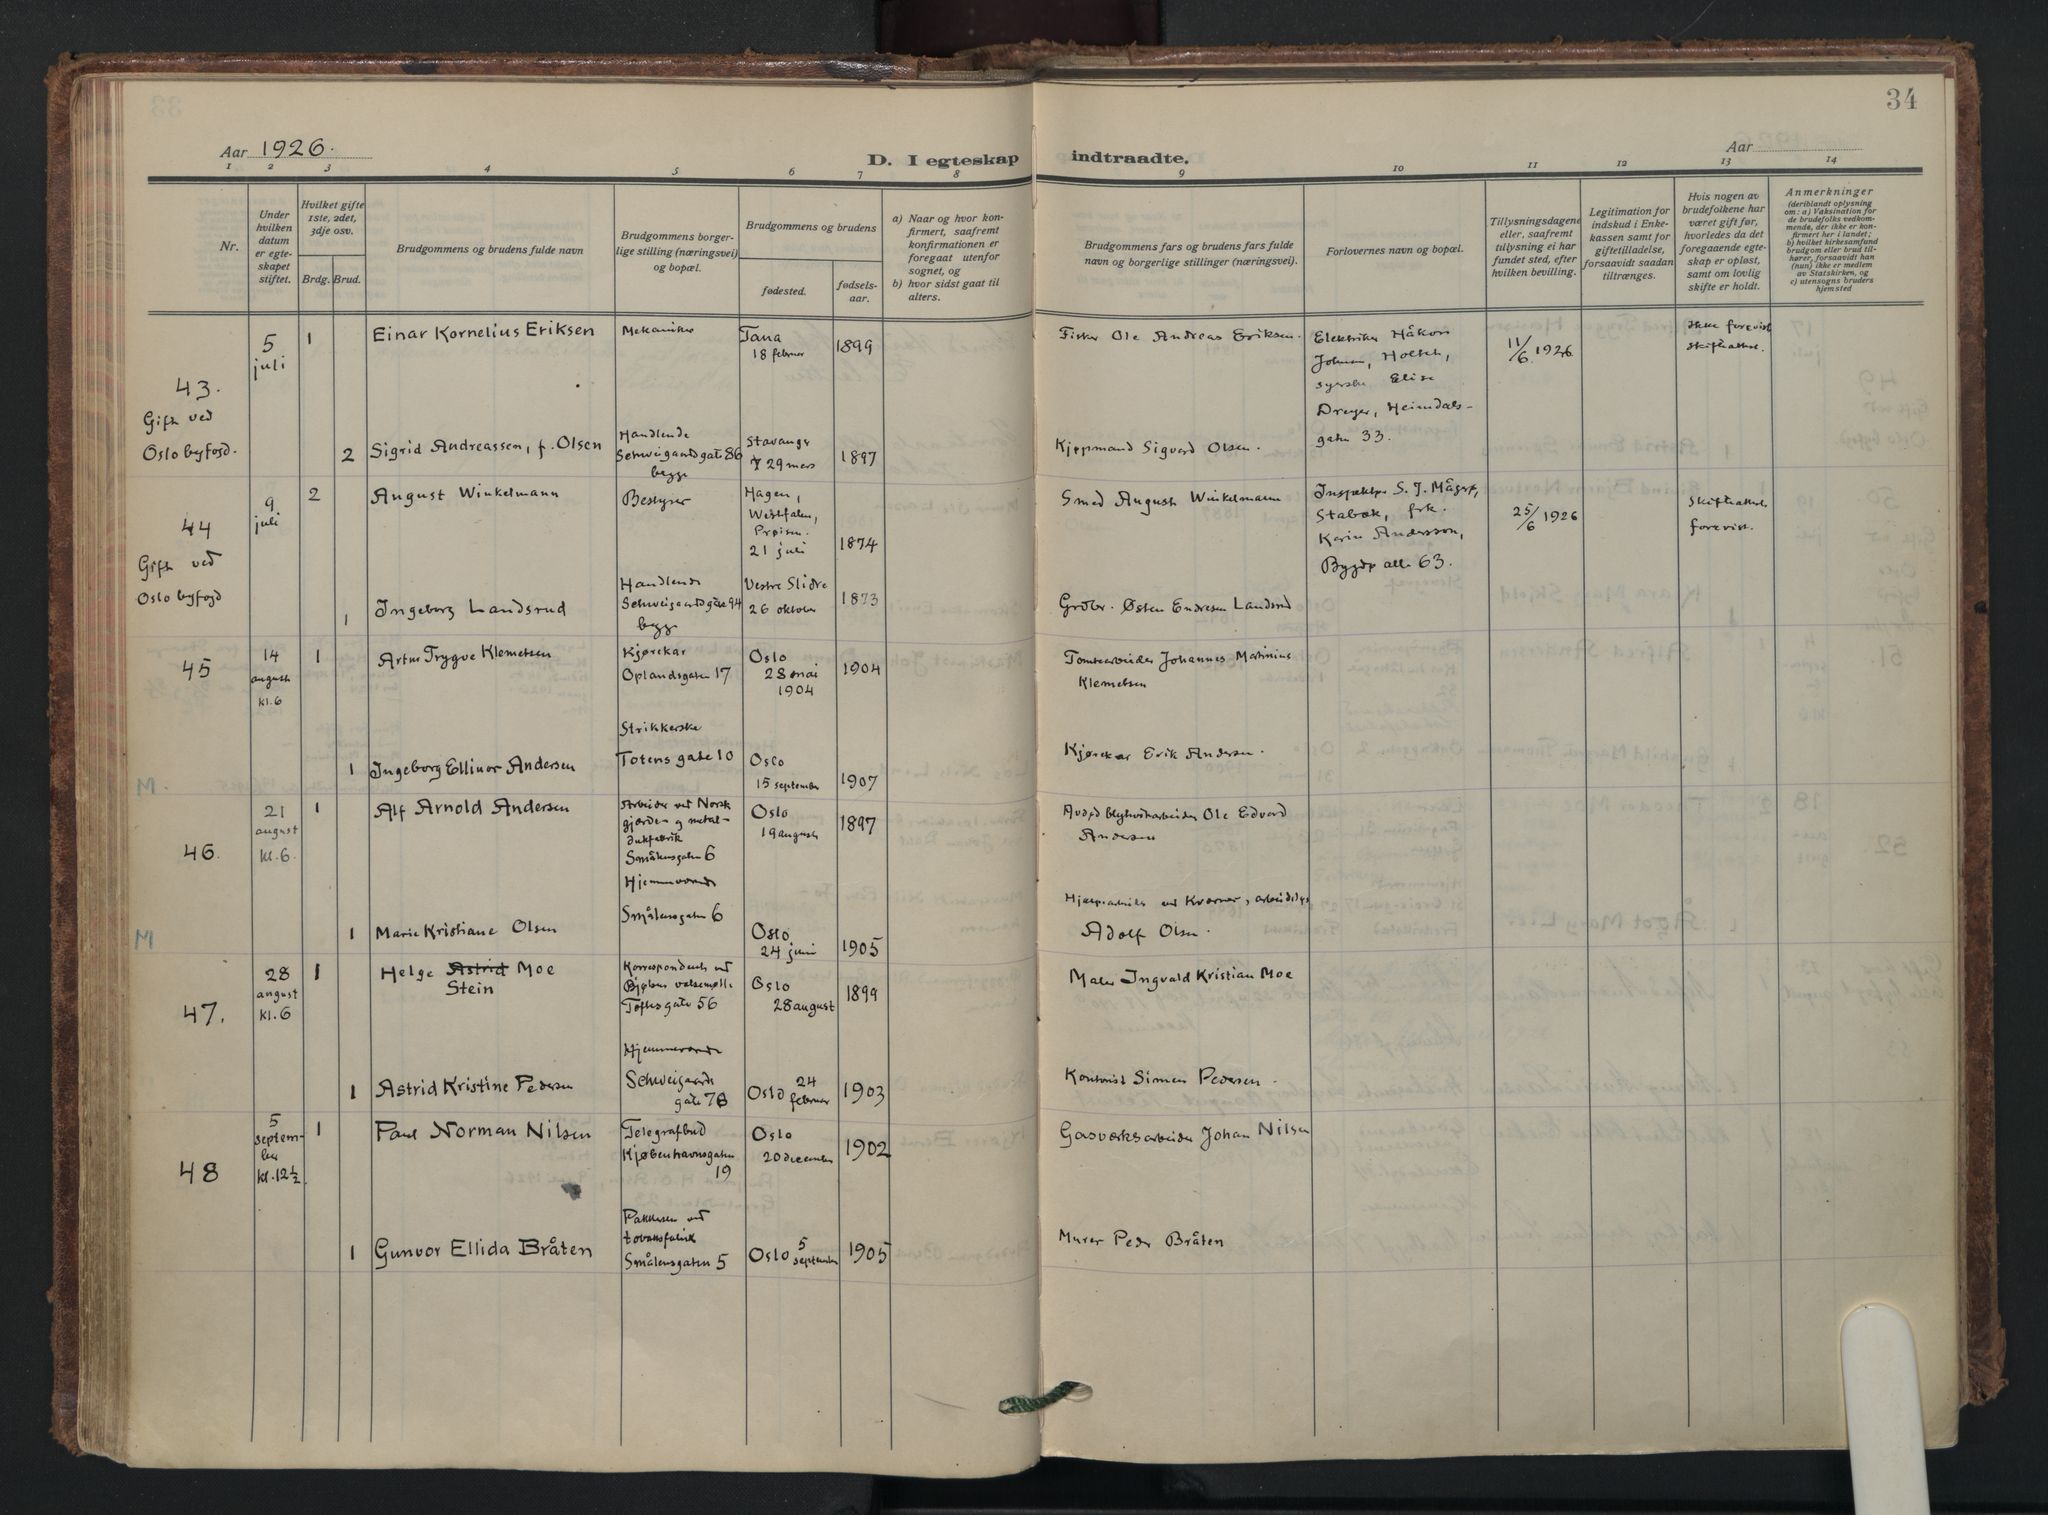 34
Aar 1926.
D. I egteskap indtraadte.
Aar
1 2 3 4 5 6 7 8 9 10 11 12 13 14
Nr.
Under hvilken datum er egteskapet stiftet.
Hvilket gifte 1ste, 2det, 3dje osv.
Brdg. Brud.
Brudgommens og brudens fulde navn
Brudgommens borgerlige stilling (næringsvei) og bopæl.
Brudgommens og brudens
fødested.
fødselsaar.
a) Naar og hvor konfirmert, saafremt konfirmationen er foregaat utenfor sognet, og
b) hvor sidst gaat til alters.
Brudgommens fars og brudens fars fulde navn og borgerlige stillinger (næringsvei).
Forlovernes navn og bopæl.
Tillysningsdagene eller, saafremt tillysning ei har fundet sted, efter hvilken bevilling.
Legitimation for indskud i Enkekassen samt for giftetilladelse, forsaavidt saadan tiltrænges.
Hvis nogen av brudefolkene har været gift før, hvorledes da det foregaaende egteskap er opløst, samt om lovlig skifte er holdt.
Anmerkninger
(deriblandt oplysning om: a) Vaksination for de brudefolks vedkommende, der ikke er konfirmert her i landet;
b) hvilket kirkesamfund brudgom eller brud tilhører, forsaavidt han (hun) ikke er medlem av Statskirken, og
c) utensogns bruders hjemsted
43.
Gift ved
Oslo byfogd.
5
juli
1
Einar Kornelius Eriksen
Mekaniker
Tana
18 februar
1899
Fisker Ole Andreas Eriksen.
Elektriker Håkon
Johnsen, Holtet,
syerske Elise
Dreyer, Heimdals-
gaten 33.
11/6 1926
skifteattest.
2
Sigrid Andreassen, f. Olsen
Handlende
Schweigaardsgate 86
begge
Stavanger
29 mars
1897
Kjøpmand Sigvard Olsen.
44
Gift ved
Oslo byfogd
9
juli
2
August Winkelmann
Bestyrer
Hagen,
Westfalen,
Prøisen.
21 juli
1874
Smed August Winkelmann
Inspektør S. J. Mågerø,
Stabæk, frk.
Karin Andersson,
Bygdø alle 63.
25/6 1926
Skifteattest
forevist.
1
Ingeborg Landsrud
Handlende
Schweigaardsgate 94
begge
Vestre Slidre
26 oktober
1873
Grdbr. Østen Endresen Landsrud
45
14
august
kl. 6
1
Artur Trygve Klemetsen
Kjørekar
Oplandsgaten 17
Oslo
28 mai
1904
1904
Tomtearbeider Johannes Martinius
Klemetsen
M.
1
Ingeborg Ellinor Andersen
Strikkerske
Totens gate 10
Oslo
15 september
1907
Kjørekar Erik Andersen.
46.
21
august
kl. 6.
1
Alf Arnold Andersen
Arbeider ved Norsk
gjærde- og metal-
dukfabrik
Smålensgaten 6
Oslo
19 august
1897
Avdød blyhvitarbeider Ole Edvard
Andersen
M
1
Marie Kristiane Olsen
Hjemmeværende
Smålensgaten 6
Oslo
24 juni
1905
Hjælpearbeider ved Kværner,
Adolf Olsen.
47.
28
august
kl. 6
1
Helge Astrid Moe
Stein
Korrespondent ved
Bjølsen valsemølle
Toftesgate 56
Oslo
28 august
1899
Maler Ingvald Kristian Moe
1
Astrid Kristine Pedersen
Hjemmeværende
Schweigaards
gate 78
Oslo 24
februar
1903
Kontorist Simen Pedersen.
48
5
septem-
ber
kl. 12½
1
Paul Norman Nilsen
Telegrafbud
Kjøbenhavnsgaten
19
Oslo
20 december
1902
Gasværksarbeider Johan Nilsen
1
Gunvor Ellida Bråten
Pakkerske ved
tobaksfabrik
Smålensgaten 5
Oslo 5
september
1905
Murer Peder Bråten